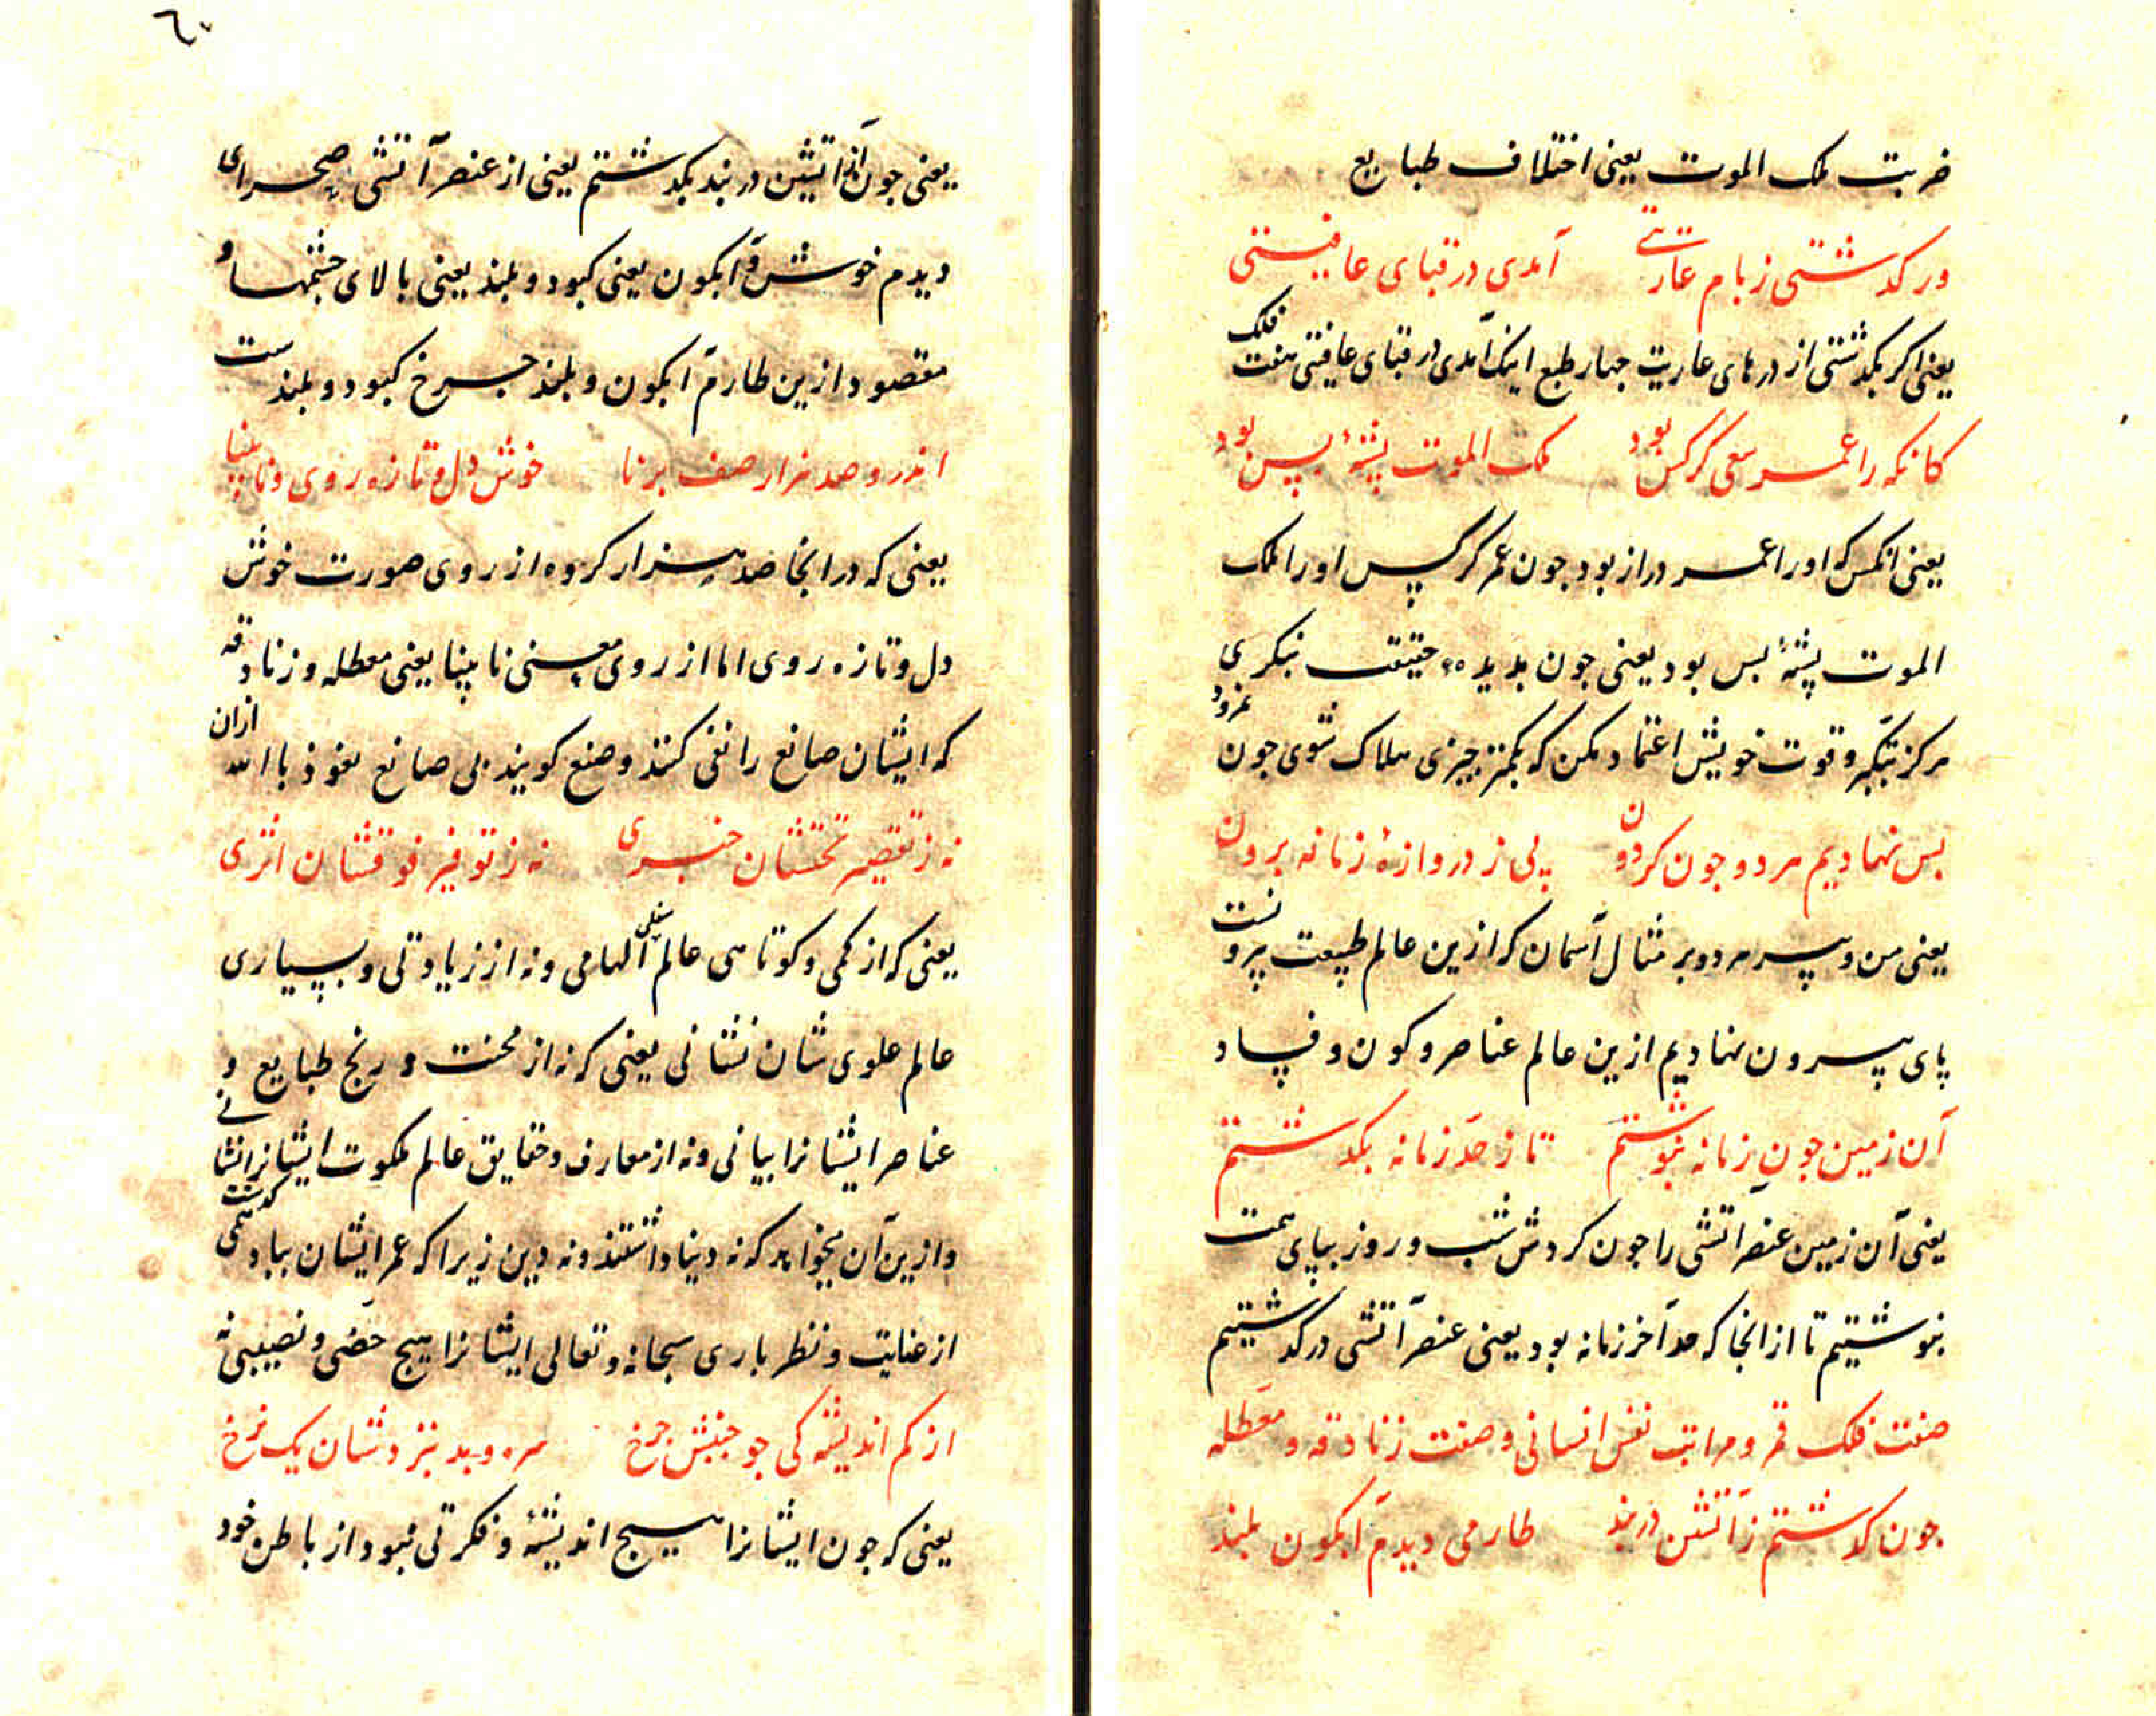 ضربت ملک الموت یعنی اختلاف طبایع
ور کدشتی ز بام عاریتی آمدی در قبای عافیتی
یعنی اکر بکدشتی از درهای عاریت جهار طبع اینک آمدی در قبای عافیتی هفت فلک
کانکه را عمر سعی کرکس بود ملک الموت پشهٔ پس بود
یعنی انکس که او را عمر دراز بود جون عمر کرکس او را ملک
الموت پشهٔ بس بود یعنی جون بدیدهٔ حقیقت بنکری
هرکز بتکبر و قوت خویش اعتماد مکن که بکمتر جیزی هلاک شوی جون نمرود
بس نهادیم هر دو جون کردون پی ز دروازهٔ زمانه برون
یعنی من و پیر هر دو بر مثال آسمان که ازین عالم طبیعت برونست
پای بیرون نهادیم ازین عالم عناصر و کون و فساد
آن زمین جون زمانه بنوشتم تا ز حد زمانه بکدشتم
یعنی آن زمین عنصر آتشی را جون کردش شب و روز بپای همت
بنوشتیم تا از انجا که حد آخر زمانه بود یعنی عنصر آتشی درکدشتیم
صفت فلک قمر و مراتب نفس انسانی و صفت زنادقه و معطله
جون کدشتم ز آتشین دربند طارمی دیدم آبکون بلند
٦٠
یعنی جون از آن اتشین دربند بکدشتم یعنی از عنصر آتشی صحرای
دیدم خوش و آبکون یعنی کبود و بلند یعنی بالای جشمها و
مقصود ازین طارم آبکون و بلند جرخ کبود و بلندست
اندرو صد هزار صف برنا خوش دل و تازه روی و نابینا
یعنی که در انجا صد هزار کروه از روی صورت خوش
دل و تازه روی اما از روی معنی نابینا یعنی معطله و زنادقه
که ایشان صانع را نفی کنند و صنع کویند بی صانع نعوذ باالله ازان
نه ز تقصیر تحتشان خبری نه ز توفیر فوقشان اثری
یعنی که از کمی و کوتاهی عالم سفلی الهامی و نه از زیادتی و بسیاری
عالم علوی شان نشانی یعنی که نه از محنت و رنج طبایع و
عناصر ایشانرا بیانی و نه از معارف و حقایق عالم ملکوت ایشانرا نشانی
و ازین آن میخواهد که نه دنیا داشتند و نه دین زیرا که عمر ایشان بباد همی کدشت
از عنایت و نظر باری سبحانه و تعالی ایشانرا هیج حضی و نصیبی نه
از کم اندیشه کی جو جنبش جرخ سره و بد بنزدشان یک نرخ
یعنی که جون ایشانرا هیج اندیشهٔ و فکرتی نبود از باطن خود